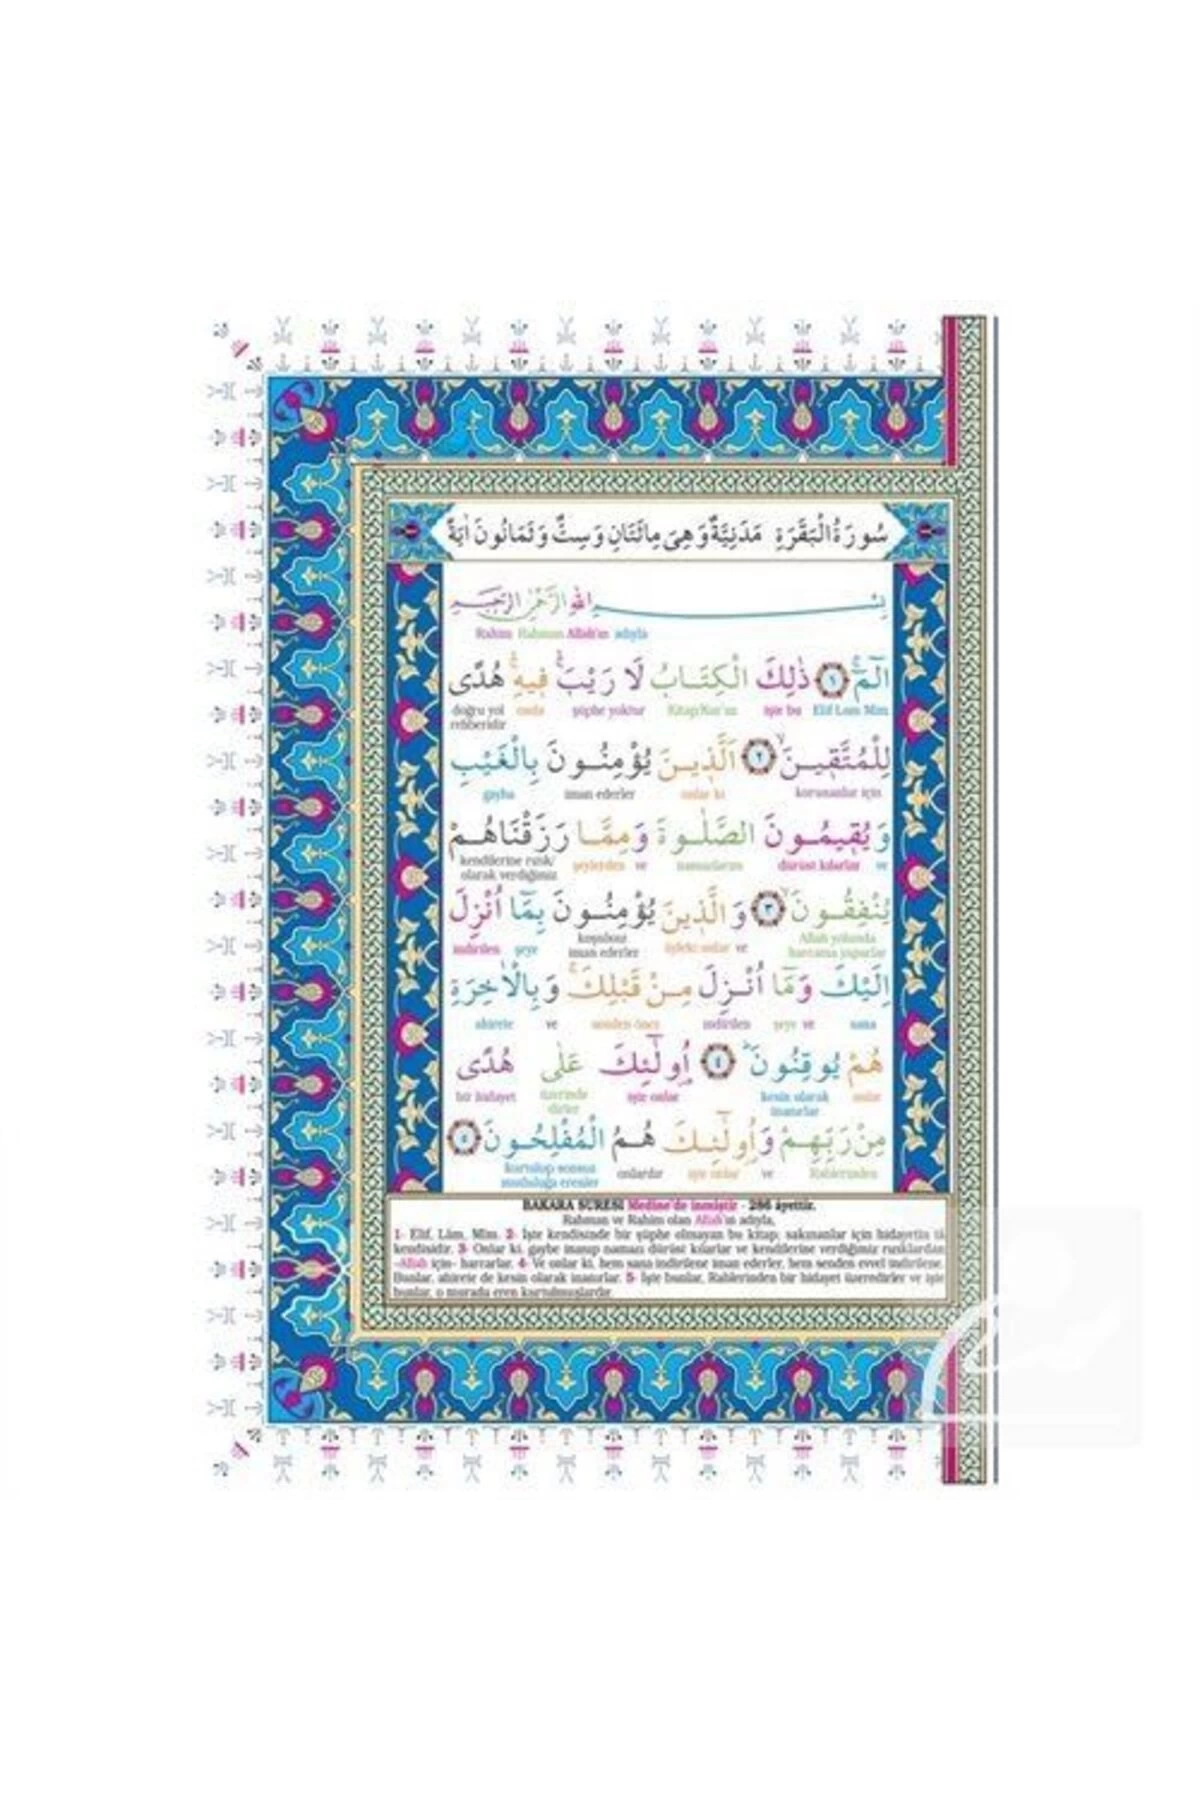 سُورَةُ الْبَقَرَةِ مَدَنِيَّةٌ وَهِىَ مِائَتَانِ وَسِتٌّ وَثَمَانُونَ اٰيَةً
بِسْمِ اللهِ الرَّحْمٰنِ الرَّحِيمِ
Rahim Rahman Allah'ın adıyla
الٓمٓۚ ﴿١﴾ ذٰلِكَ الْكِتَابُ لَا رَيْبَۚ فِيهِۚ هُدًى
doğru yol onda şüphe yoktur Kitap/Kur'an işte bu Elif Lam Mim
rehberidir
لِلْمُتَّقِينَۙ ﴿٢﴾ اَلَّذِينَ يُؤْمِنُونَ بِالْغَيْبِ
gayba iman ederler onlar ki korunanlar için
وَيُقِيمُونَ الصَّلٰوةَ وَمِمَّا رَزَقْنَاهُمْ
kendilerine rızık şeylerden ve namazlarını dürüst kılarlar ve
olarak verdiğimiz
يُنْفِقُونَۙ ﴿٣﴾ وَالَّذِينَ يُؤْمِنُونَ بِمَٓا اُنْزِلَ
indirilen şeye koşulsuz iman ederler öyleki onlar ve Allah yolunda
harcama yaparlar
اِلَيْكَ وَمَٓا اُنْزِلَ مِنْ قَبْلِكَۚ وَبِالْاٰخِرَةِ
ahirete ve senden önce indirilen şeye ve sana
هُمْ يُوقِنُونَۜ ﴿٤﴾ اُو۬لٰٓئِكَ عَلٰى هُدًى
bir hidayet üzerinde işte onlar kesin olarak onlar
dirler inanırlar
مِنْ رَبِّهِمْ وَاُو۬لٰٓئِكَ هُمُ الْمُفْلِحُونَ ﴿٥﴾
kurtulup sonsuz onlardır işte onlar ve Rablerinden
mutluluğa erenler
BAKARA SURESİ Medine'de inmiştir - 286 âyettir.
Rahman ve Rahim olan Allah'ın adıyla,
1- Elif, Lâm, Mim. 2- İşte kendisinde bir şüphe olmayan bu kitap; sakınanlar için hidayetin tâ
kendisidir. 3- Onlar ki, gaybe inanıp namazı dürüst kılarlar ve kendilerine verdiğimiz rızıklardan
-Allah için- harcarlar. 4- Ve onlar ki, hem sana indirilene iman ederler, hem senden evvel indirilene.
Bunlar, ahirete de kesin olarak inanırlar. 5- İşte bunlar, Rablerinden bir hidayet üzeredirler ve işte
bunlar, o murada eren kurtulmuşlardır.